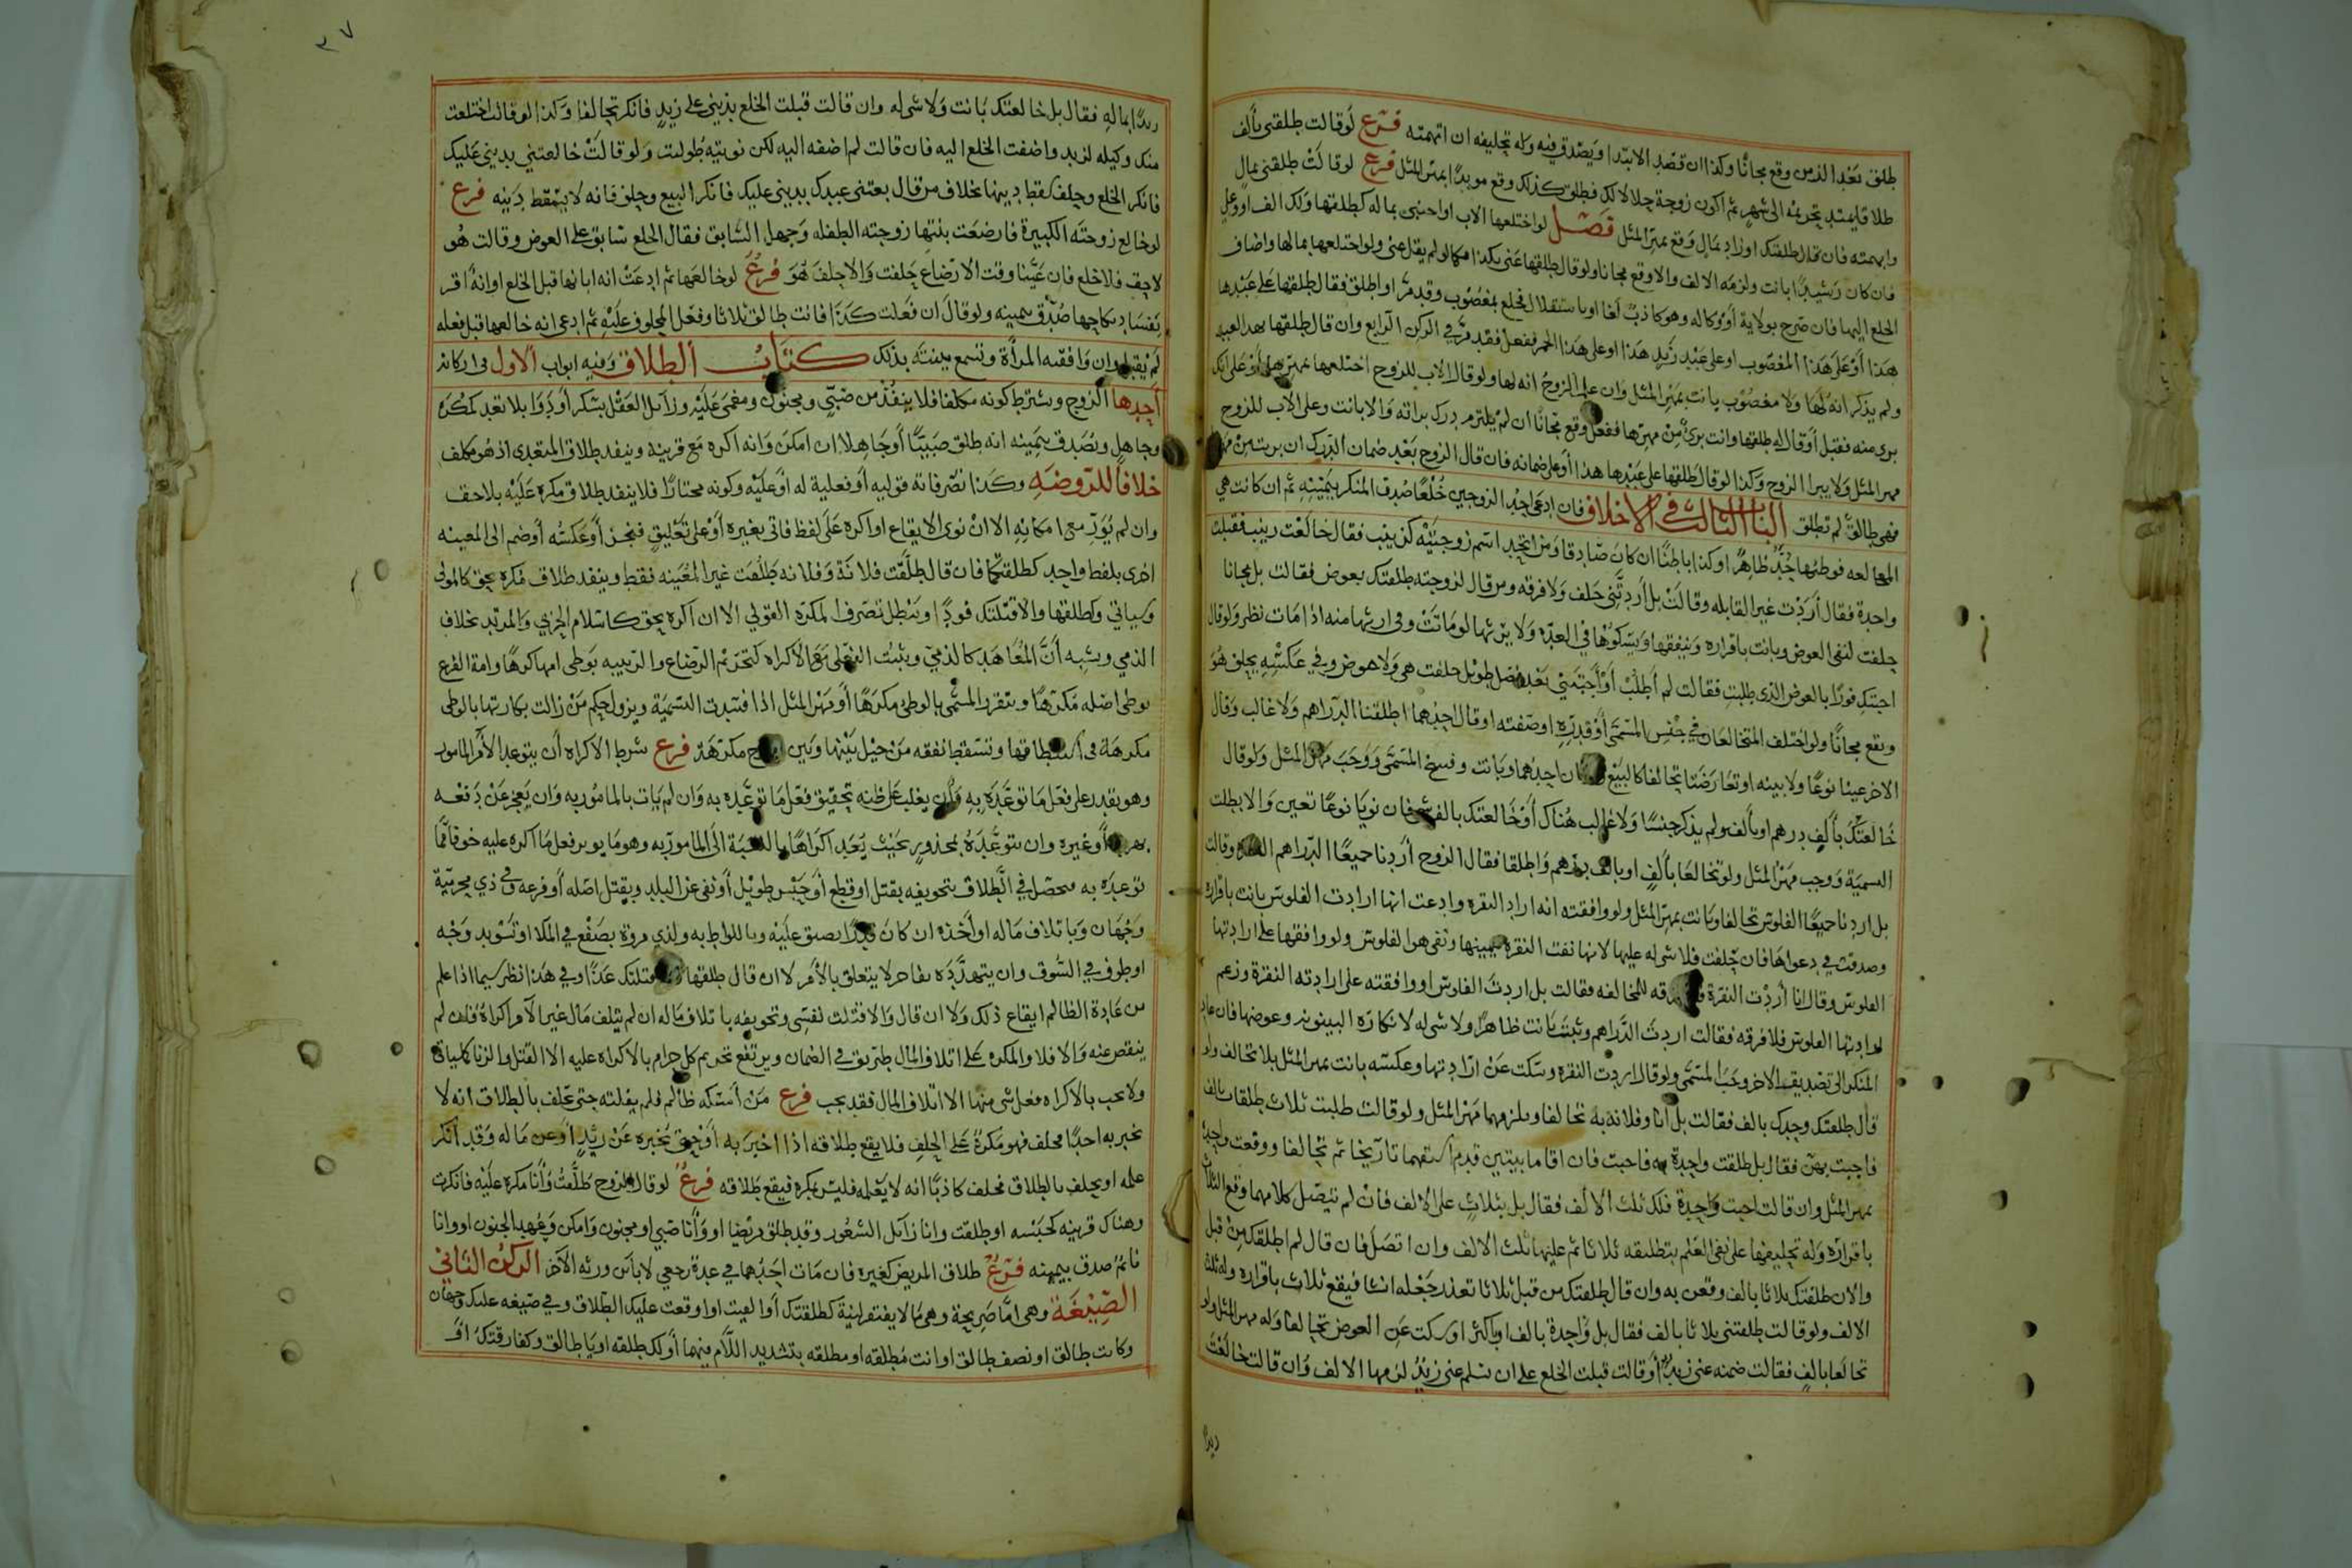 طلق بعد الزمن وقع مجانًا وكذا ان قصد الابتدا ويصدق فيه وله تحليفه ان اتهمته فرع لو قالت طلقني بألف
طلاقا يمتد تحريمه الى شهر ثم اكون زوجة حلالا لك فطلق كذلك وقع موبدًا بمهر المثل فرع لو قالت طلقني بمالٍ
وابهمته فان قال طلقتك اوزاد بمال وقع بمهر المثل فصل لو اختلعها الاب او اجنبي بماله كطلقها ولك الف او وعلي
فان كان رشيدًا بانت ولزمه الالف والا وقع مجانا ولو قال طلقها عني بكذا فكما لو لم يقل عني ولو اختلعها بمالها واضاف
الخلع اليها فان صرح بولاية أو وكاله وهو كاذب لغا او باستقلال فخلع بمغصوب وقد مر او اطلق فقال طلقها على عبدها
هذا أو على هذا المغصوب او على عبد زيد هذا او على هذا الخمر ففعل فقد مر في الركن الرابع وان قال طلقها بهذا العبد
ولم يذكر انه لها ولا مغصوب بانت بمهر المثل وان علم الزوج انه لها ولو قال الاب للزوج اختلعها بمهرها أو على انك
بري منه فقبل أو قال له طلقها وانت برئ من مهرها ففعل وقع مجانًا ان لم يلتزم درك براته والا بانت وعلى الاب للزوج
مهر المثل ولا يبرا الزوج وكذا لو قال طلقها على عبدها هذا أو على ضمانه فان قال الزوج بعد ضمان الدرك ان برئت من مهرها
فهي طالق لم تطلق الباب الثالث في الاختلاف فان ادعى احد الزوجين خلعًا صدق المنكر بيمينه ثم ان كانت هي
المخالعه فوطئها حد ظاهرًا وكذا باطنًا ان كان صادقا ومن اتحد اسم زوجتيه كزينب فقال خالعت زينب فقبلت
واحدة فقال أردت غير القابله وقالت بل أردتني حلف ولا فرقه ومن قال لزوجته طلقتك بعوض فقالت بل مجانا
حلفت لنفي العوض وبانت باقراره وينفقها ويكسوها في العدة ولا يرثها لو ماتت وفي ارثها منه اذا مات نظر ولو قال
اجبتك فورًا بالعوض الذي طلبت فقالت لم أطلب أو أجبتني بعد فصل طويل حلفت هي ولا عوض وفي عكسه يحلف هو
ويقع مجانًا ولو اختلف المتخالعان في جنس المسمى أو قدره او صفته او قال احدهما اطلقنا الدراهم ولا غالب وقال
الاخر عينا نوعًا ولا بينه او تعارضتا تحالفا كالبيع احدهما وبانت وفسخ المسمى ووجب مهر المثل ولو قال
خالعتك بألف درهم او بألف ولم يذكر جنسًا ولا غالب هناك أو خالعتك بالف شي فان نويا نوعًا تعين والا بطلت
التسمية ووجب مهر المثل ولو تخالعا بألف او بالف درهم واطلقا فقال الزوج أردنا جميعًا الدراهم وقالت
بل اردنا جميعًا الفلوس تحالفا وبانت بمهر المثل ولو وافقته انه اراد النقره وادعت انها ارادت الفلوس بانت باقراره
وصدقت في دعواها فان حلفت فلا شي له عليها لانها نفت النقره بيمينها ونفى هو الفلوس ولو وافقها على ارادتها
الفلوس وقال انا أردت النقرة للمخالفه فقالت بل اردت الفلوس او وافقته على ارادته النقرة وزعم
ارادتها الفلوس فلا فرقه فقالت اردت الدراهم وبنت بانت ظاهرًا ولا شي له لانكاره البينونه وعوضها فان عاد
المنكر الى تصديق الاخر وجب المسمى ولو قال اردت النقره وسكت عن ارادتها وعكسه بانت بمهر المثل بلا تحالف ولو
قال طلقتك وحدك بالف فقالت بل انا وفلانة به تحالفا ويلزمها مهر المثل ولو قالت طلبت ثلاث طلقات بالف
فاجبت بهن فقال بل طلقت واحدة به فاجبت فان اقاما بينتين قدم اسبقهما تاريخا ثم تحالفا ووقعت واحدة
بمهر المثل وان قالت اجبت واحدة فلك ثلث الالف فقال بل بثلاث على الالف فان لم يتصل كلامهما وقع الثلاث
باقراره وله تحليفها على نفي العلم بتطليقه ثلاثا ثم عليها ثلث الالف وان اتصل فان قال لم اطلقك من قبل
والان طلقتك ثلاثا بالف وقعن به وان قال طلقتك من قبل ثلاثا تعذر جعله انشا فيقع ثلاث باقراره وله ثلث
الالف ولو قالت طلقتني ثلاثا بالف فقال بل واحدة بالف او باكثر او سكت عن العوض تحالفا وله مهر المثل ولو
تخالعا بالف فقالت ضمنه عني زيد أو قالت قبلت الخلع على ان تسلم عني زيد لزمها الالف وان قالت خالعت
زيدًا
٣٧
زيدًا بماله فقال بل خالعتك بانت ولا شي له وان قالت قبلت الخلع بديني على زيد فانكر تحالفا وكذا لو قالت اختلعت
منك وكيله لزيد واضفت الخلع اليه فان قالت لم اضفه اليه لكن نويته طولبت ولو قالت خالعتني بديني عليك
فانكر الخلع وحلف سقط دينها بخلاف من قال بعتني عبدك بديني عليك فانكر البيع وحلف فانه لا يسقط دينه فرع
لو خالع زوجته الكبيرة فارضعت بنتها زوجته الطفله وجهل السابق فقال الخلع سابق على العوض وقالت هو
لاحق فلا خلع فان عينا وقت الارضاع حلفت والا حلف هو فرع لو خالعها ثم ادعت انه ابانها قبل الخلع او انه اقر
بفساد نكاحها صدق بيمينه ولو قال ان فعلت كذا فانت طالق ثلاثا وفعل المحلوف عليه ثم ادعى انه خالعها قبل فعله
لم يقبل وان وافقته المرأة وتسمع بينته بذلك كتاب الطلاق وفيه ابواب الاول في اركانه
أحدها الزوج وشرط كونه مكلفا فلا ينفذ من صبي ومجنون ومغمى عليه وزائل العقل بسكر أو دوا بلا تعد كمكره
وجاهل ويصدق بيمينه انه طلق صبيًا أو جاهلا ان امكن وانه اكره مع قرينة وينفد طلاق المتعدي اذ هو مكلف
خلافا للروضه وكذا تصرفاته قوليه أو فعلية له أو عليه وكونه مختارًا فلا ينفد طلاق مكره عليه بلا حق
وان لم يور مع امكانه الا ان نوى الايقاع او اكره على لفظ فاتى بغيره أو على تعليق فنجز أو عكسه أو ضم الى المعينه
اخرى بلفظ واحد كطلقتكما فان قال طلقت فلانة وفلانه طلقت غير المعينه فقط وينفد طلاق مكره بحق كالمولي
وسياتي وكطلقها والا قتلتك قودًا ويبطل تصرف المكره القولي الا ان اكره بحق كاسلام الحربي والمرتد بخلاف
الذمي ويشبه أن المعاهد كالذمي ويثبت الفعلي مع الاكراه كتحريم الرضاع والربيبه بوطى امها كرهًا وامة الفرع
بوطى اصله مكرهًا ويتقرر المسمى بالوطى مكرهًا أو مهر المثل اذا فسدت التسمية ويزول حكم من زالت بكارتها بالوطى
مكرهة في استنطاقها وتسقط نفقه من حيل بينها وبين مكرهة فرع شرط الاكراه أن يتوعد الآمر المامور
وهو يقدر على فعل ما توعده به وأن يغلب على ظنه تحقيق فعل ما توعده به وان لم يات بالمامور به وان يعجز عن دفعه
بهرب أو غيره وان يتوعده بمحذور بحيث يعد اكراهًا بالنسبة الى المامور به وهو ما يوثر فعل ما اكره عليه خوفا مما
توعده به فيحصل في الطلاق بتخويفه بقتل او قطع أو حبس طويل أو نفي عن البلد وبقتل اصله أو فرعه وفي ذي محرمية
وجهان وباتلاف ماله او أخذه ان كان قدرًا يضيق عليه وباللواط به ولذي مروة بصفع في الملا او تسويد وجه
او طوف في السوق وان يتهدده بعاجل لا يتعلق بالأمر لا ان قال طلقها قتلتك غدًا وفي هذا نظر سيما اذا علم
من عادة الظالم ايقاع ذلك ولا ان قال والا قتلت نفسي وتخويفه باتلاف ماله ان لم يتلف مال غير الآمر اكراه فان لم
ينقص عنه والا فلا والمكره على اتلاف المال طريق في الضمان ويرتفع تحريم كل حرام بالاكراه عليه الا القتل والزنا كما ياتي
ولا يجب بالاكراه فعل شي منها الا اتلاف المال فقد يجب فرع من أمسكه ظالم فلم يفلته حتى حلف بالطلاق انه لا
يخبر به احدًا فحلف فهو مكره على الحلف فلا يقع طلاقه اذا اخبر به أو حتى يخبره عن زيد أو عن ماله وقد أنكر
علمه او يحلف بالطلاق فحلف كاذبًا انه لا يعلمه فليس بمكره فيقع طلاقه فرع لو قال الزوج طلقت وأنا مكره عليه فانكرت
وهناك قرينه كحبسه او طلقت وانا زائل الشعور وقد طلق مريضا او وأنا صبي او مجنون وامكن وعهد الجنون او وانا
نائم صدق بيمينه فرع طلاق المريض كغيره فان مات احدهما في عدة رجعي لا بائن ورثه الآخر الركن الثاني
الصيغة وهي اما صريحة وهي ما لا يفتقر لنية كطلقتك أو القيت او اوقعت عليك الطلاق وفي صيغه عليك وجهان
وكانت طالق او نصف طالق او انت مطلقه او مطلقه بتشديد اللام فيهما أو لك طلقه او يا طالق وكفارقتك أو